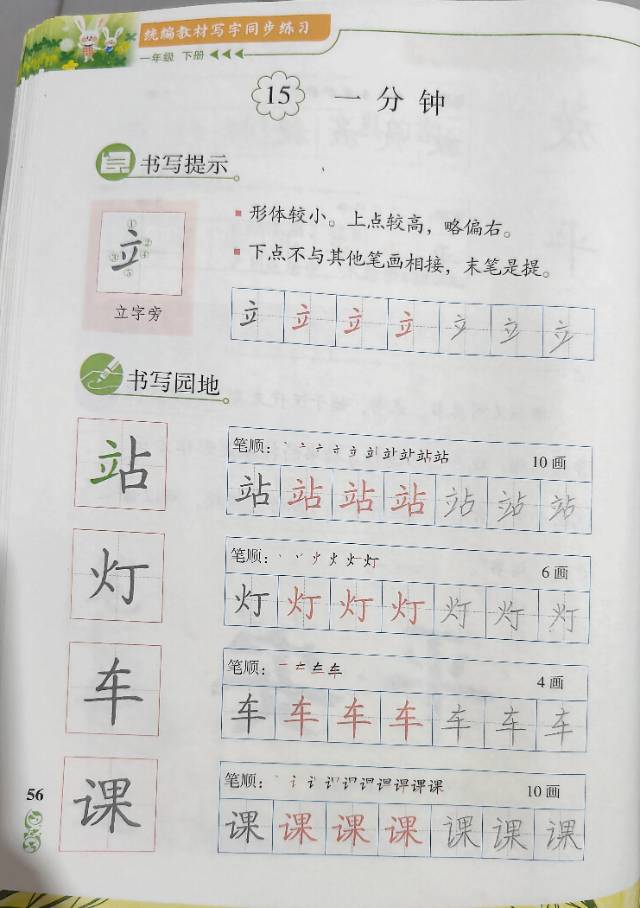 统编教材写字同步练习
一年级 下册
15 一分钟
书写提示
立
① ② ③ ④ ⑤
立字旁
形体较小。上点较高，略偏右。
下点不与其他笔画相接，末笔是提。
立 立 立 立 立 立 立
书写园地
站
笔顺： 站 10画
站 站 站 站 站 站 站
灯
笔顺： 灯 6画
灯 灯 灯 灯 灯 灯 灯
车
笔顺： 车 4画
车 车 车 车 车 车 车
课
笔顺： 课 10画
课 课 课 课 课 课 课
56